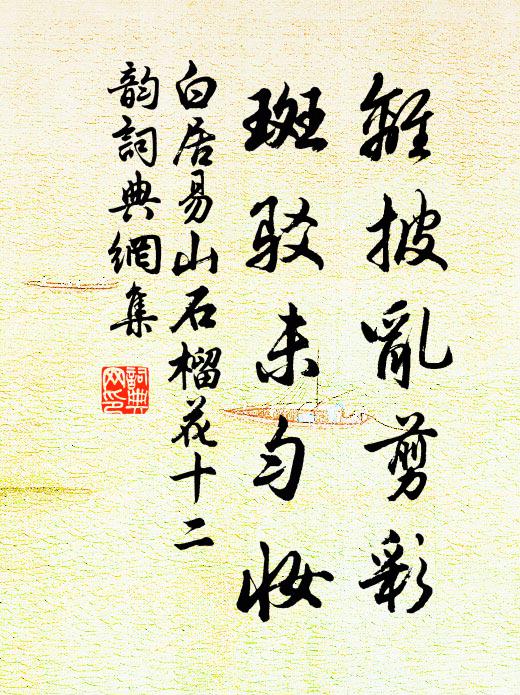 離披亂剪彩
斑駁未勻妝
白居易山石榴花十二
韵詞典網集
詞典网印